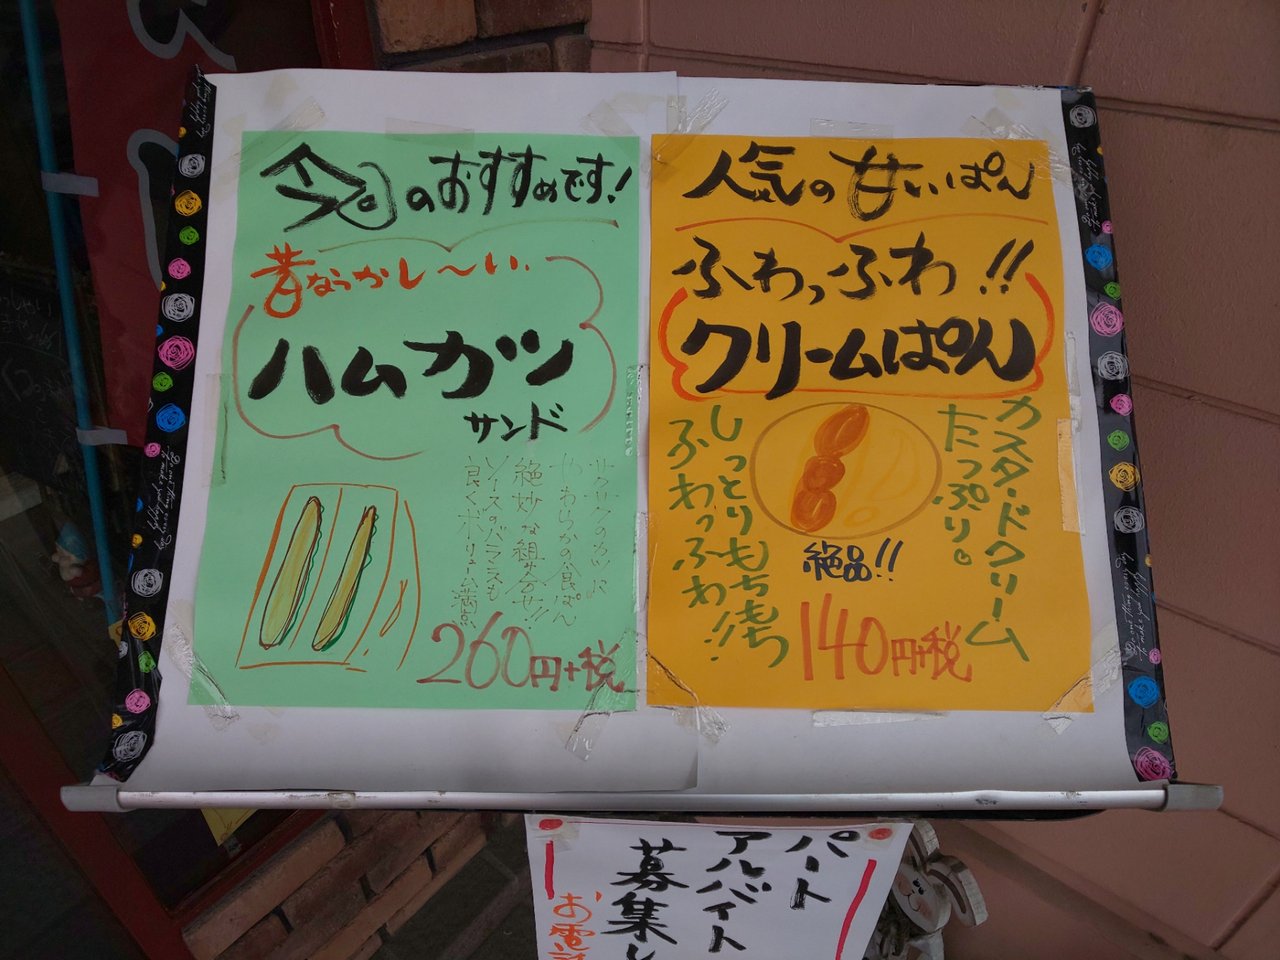 今日のおすすめです!
昔なつかし〜い。
ハムカツ
サンド
サクサクのカツに
やわらかの食ぱん
絶妙な組み合せ!!
ソースのバランスも
良くボリューム満点
260円+税
人気の甘いぱん
ふわっふわ!!
クリームぱん
カスタードクリーム
たっぷり。
しっとりもちもち
ふわっふわ!!
絶品!!
140円+税
パート
アルバイト
募集し
お電話